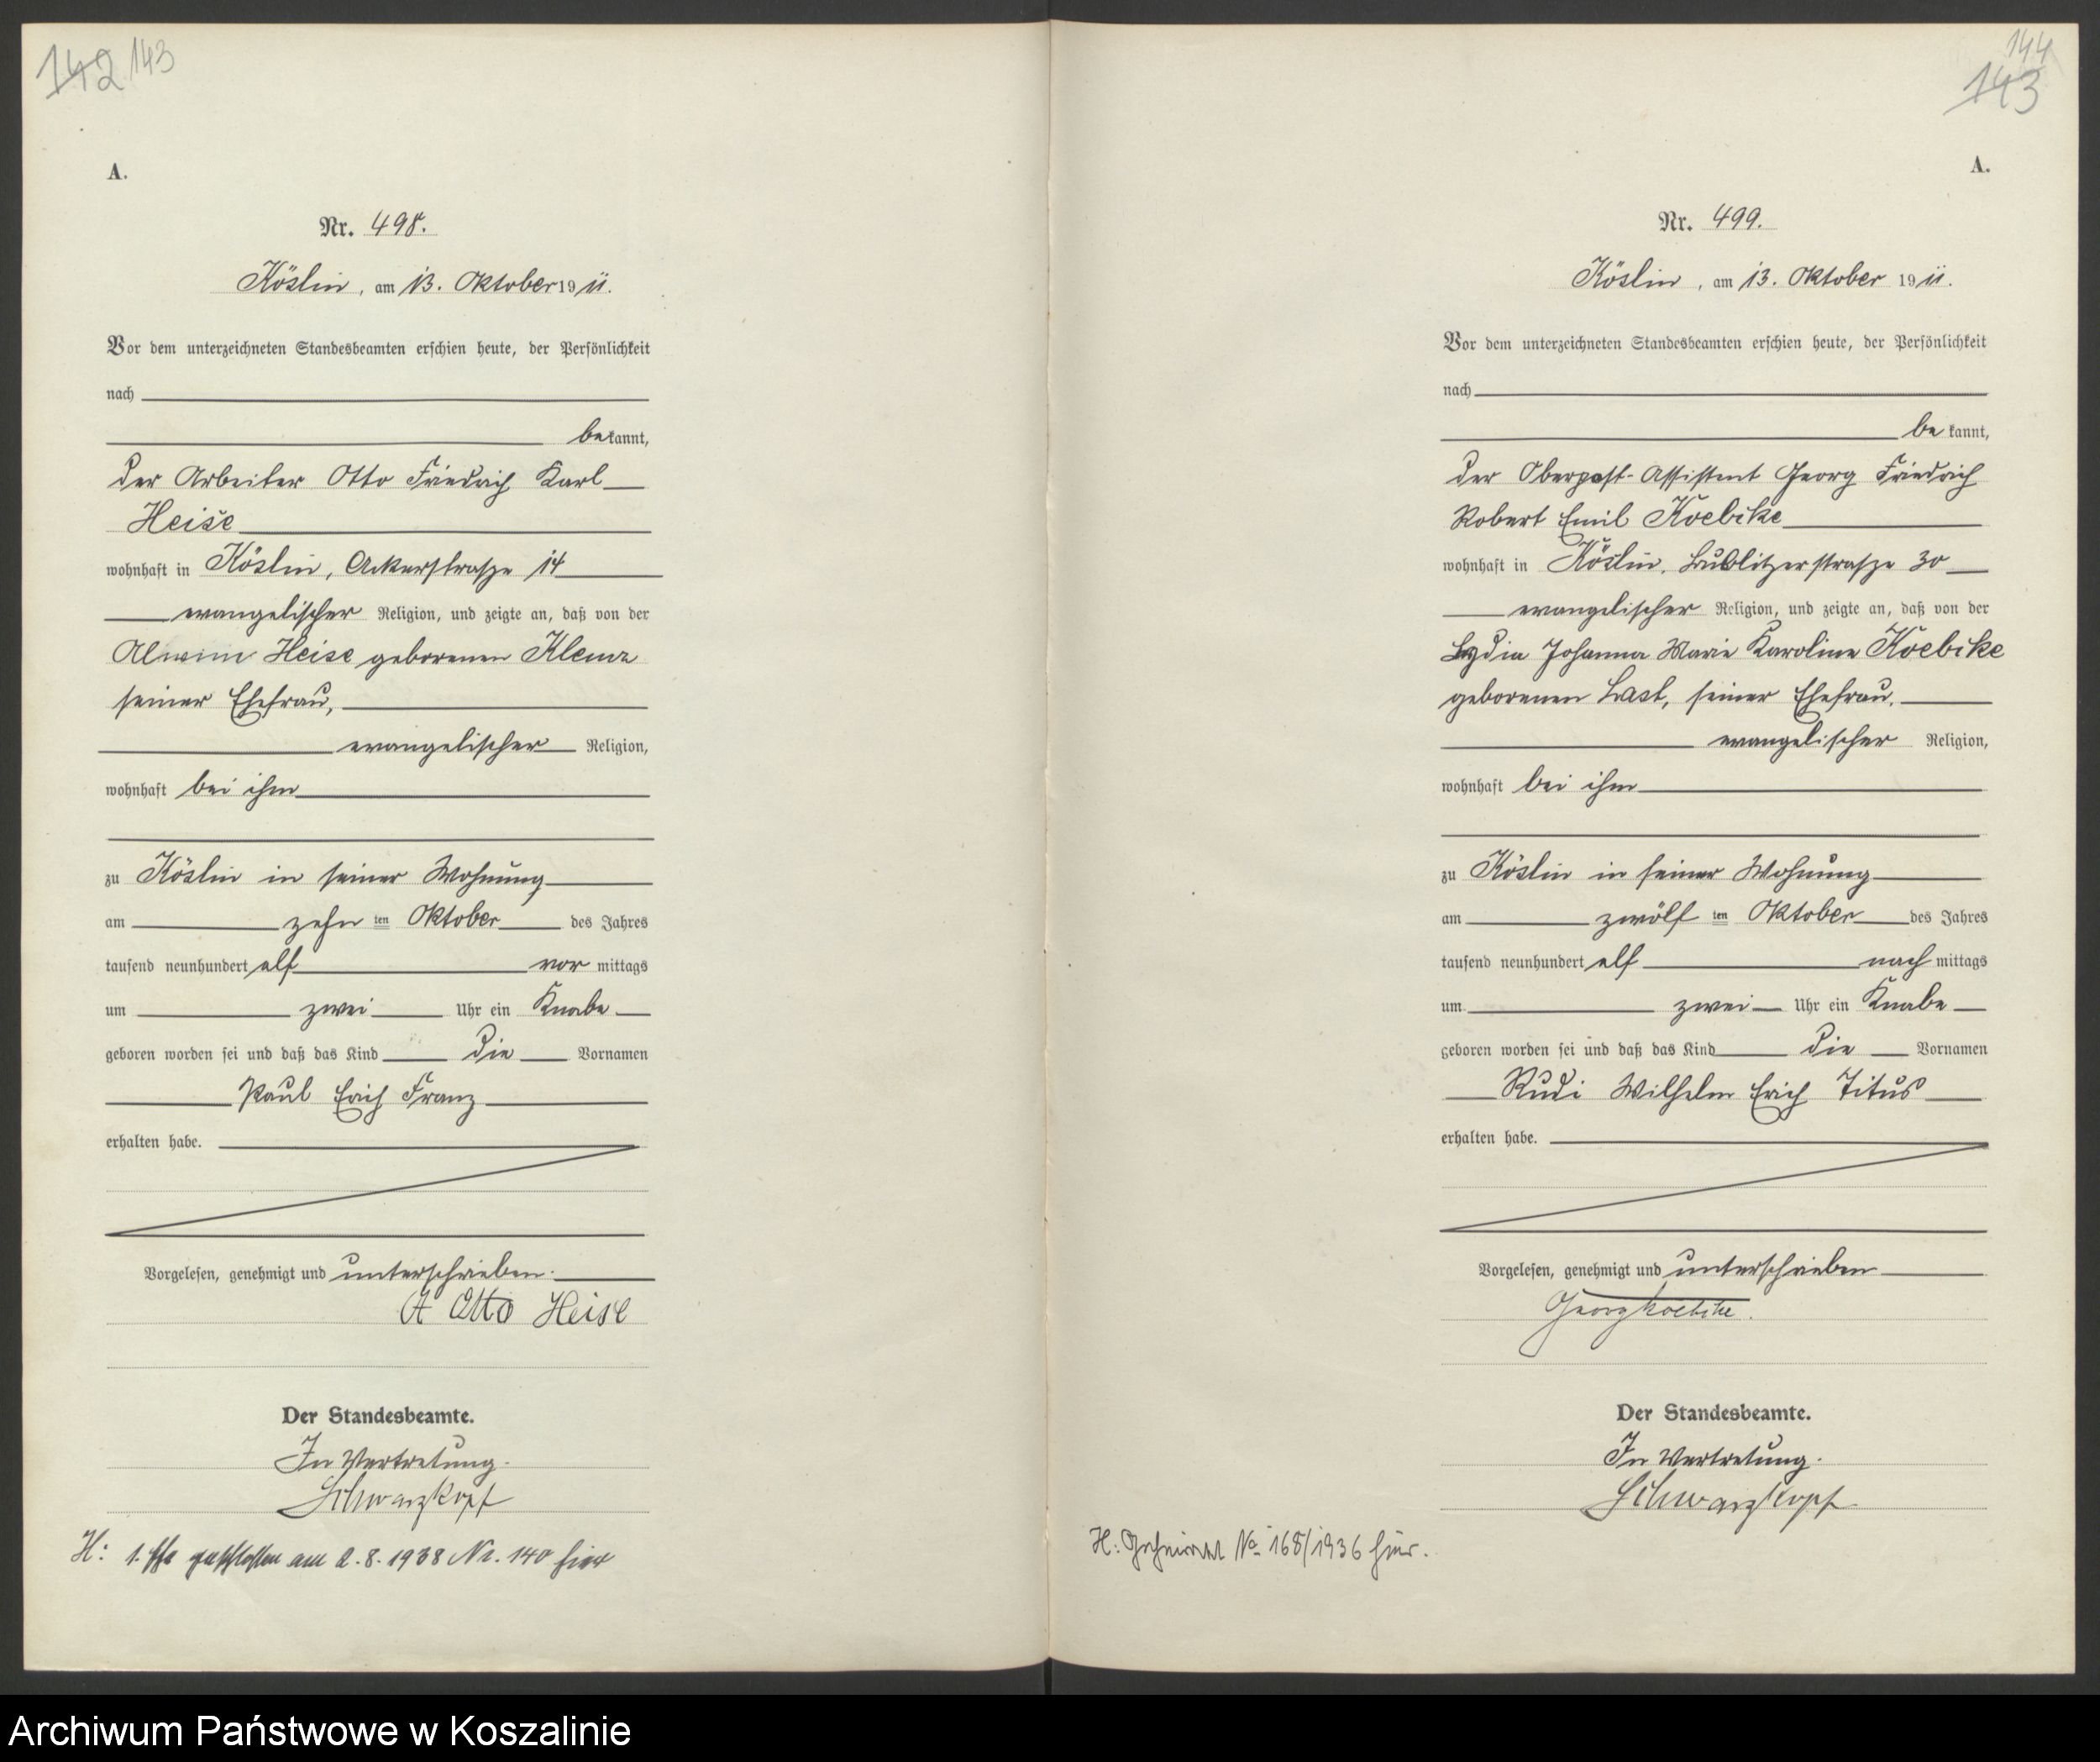 142 143
A.
Nr. 498.
Köslin, am 13. Oktober 1911.
Vor dem unterzeichneten Standesbeamten erschien heute, der Persönlichkeit
nach
bekannt,
der Arbeiter Otto Friedrich Karl
Heise
wohnhaft in Köslin, Ackerstraße 14
evangelischer Religion, und zeigte an, daß von der
Heise geborenen
seiner Ehefrau,
evangelischer Religion,
wohnhaft bei ihm
zu Köslin in seiner Wohnung
am zehn ten Oktober des Jahres
tausend neunhundert elf vor mittags
um zwei Uhr ein Knabe
geboren worden sei und daß das Kind die Vornamen
Paul Erich Franz
erhalten habe.
Vorgelesen, genehmigt und unterschrieben.
Otto Heise
Der Standesbeamte.
In Vertretung.
Schwarzkopf
H: 1. Ehe geschlossen am 2.8.1938 Nr. 140 hier
144
143
A.
Nr. 499.
Köslin, am 13. Oktober 1911.
Vor dem unterzeichneten Standesbeamten erschien heute, der Persönlichkeit
nach
bekannt,
der Oberpost-Assistent Georg Friedrich
Robert Emil Koebike
wohnhaft in Köslin, Bublitzerstraße 30
evangelischer Religion, und zeigte an, daß von der
Lydia Johanna Marie Karoline Koebike
geborenen Last, seiner Ehefrau,
evangelischer Religion,
wohnhaft bei ihm
zu Köslin in seiner Wohnung
am zwölf ten Oktober des Jahres
tausend neunhundert elf nach mittags
um zwei Uhr ein Knabe
geboren worden sei und daß das Kind die Vornamen
Rudi Wilhelm Erich Titus
erhalten habe.
Vorgelesen, genehmigt und unterschrieben
Georg Koebike.
Der Standesbeamte.
In Vertretung.
Schwarzkopf
H: Geheiratet No 168/1936 hier.
Archiwum Państwowe w Koszalinie